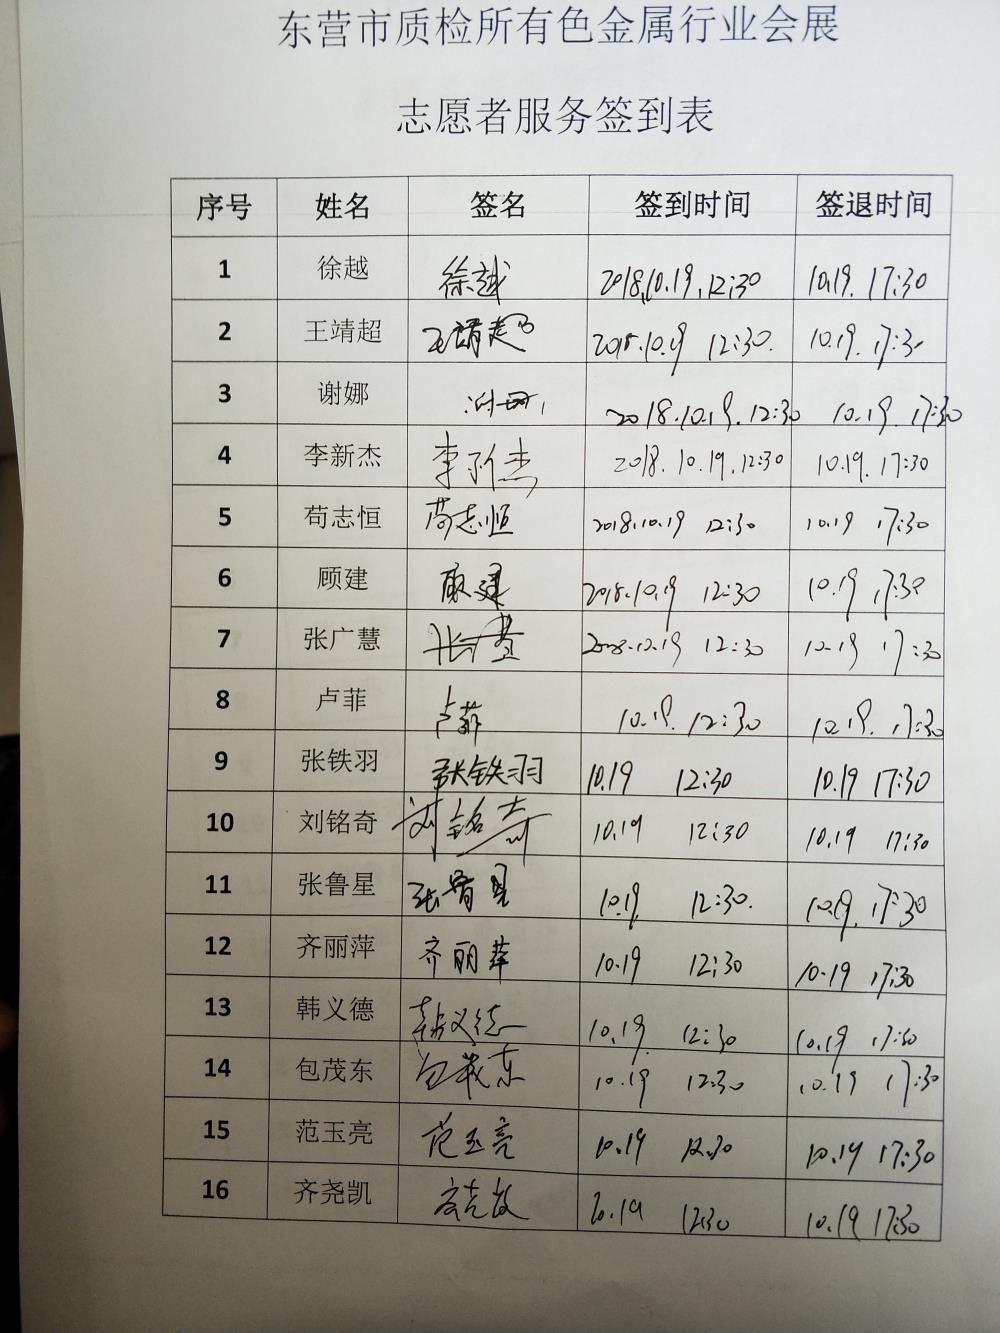 东营市质检所有色金属行业会展
志愿者服务签到表
序号 姓名 签名 签到时间 签退时间
1 徐越 徐越 2018.10.19.12:30 10.19. 17:30
2 王靖超 王靖超 2018.10.19 12:30. 10.19. 17:30
3 谢娜 谢娜 2018.10.19.12:30 10.19. 17:30
4 李新杰 李新杰 2018.10.19.12:30 10.19.17:30
5 苟志恒 苟志恒 2018.10.19 12:30 10.19 17:30
6 顾建 顾建 2018.10.19 12:30 10.19 17:30
7 张广慧 张广慧 2018.10.19 12:30 10.19 17:30
8 卢菲 卢菲 10.19. 12:30 10.19. 17:30
9 张铁羽 张铁羽 10.19 12:30 10.19 17:30
10 刘铭奇 刘铭奇 10.19 12:30 10.19 17:30
11 张鲁星 张鲁星 10.19. 12:30. 10.19. 17:30
12 齐丽萍 齐丽萍 10.19 12:30 10.19 17:30
13 韩义德 韩义德 10.19. 12:30 10.19 17:30
14 包茂东 包茂东 10.19 12:30 10.19 17:30
15 范玉亮 范玉亮 10.19 12.30 10.19 17:30
16 齐尧凯 10.19 12:30 10.19 17:30